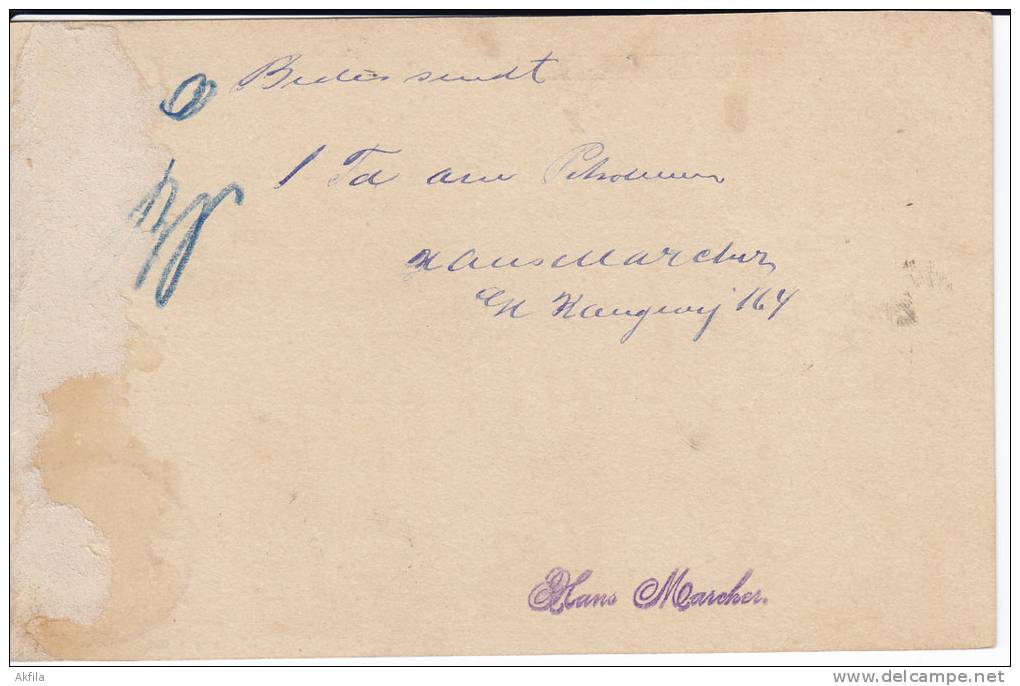 Bedes sendt
1 Td am Petroleum
Hans Marcher
Gl Kongevej 164
Hans Marcher.
Akfila
www.delcampe.net